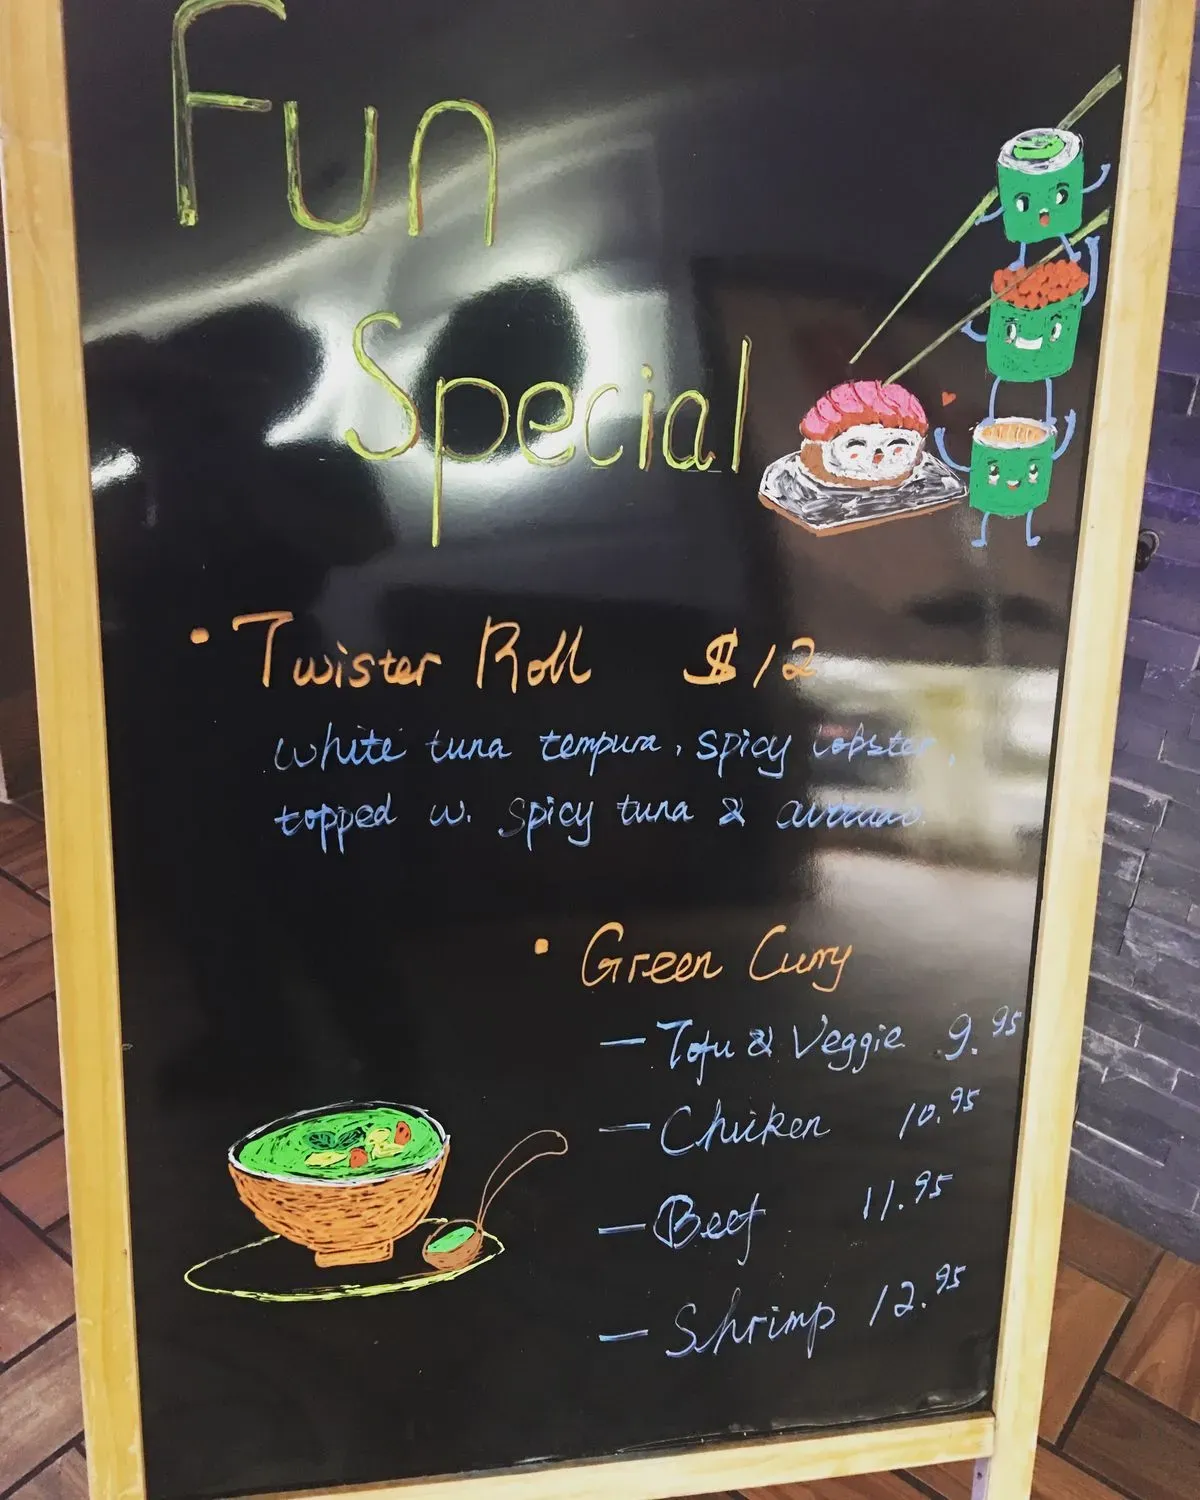 Fun
Special
• Twister Roll $12
white tuna tempura, spicy lobster,
topped w. spicy tuna &
• Green Curry
— Tofu & Veggie 9.95
— Chicken 10.95
— Beef 11.95
— Shrimp 12.95